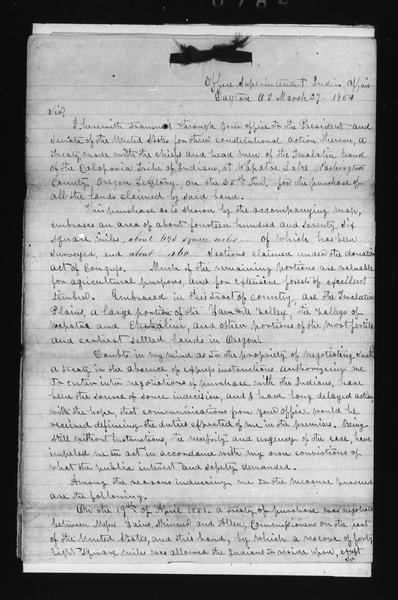 Office Superintendent Indian Affairs
Dayton O.T. March 27, 1854
Sir,
I herewith transmit through your office to the President and
Senate of the United States for their constitutional action thereon, a
treaty made with the chiefs and head men of the Tualatin band
of the Calapooia tribe of Indians, at Wapatoo Lake Washington
County, Oregon Territory, on the 25th Inst. for the purchase of
all the lands claimed by said band.
This purchase as is shown by the accompanying map,
embraces an area of about fourteen hundred and seventy six
square miles, about 693 square miles of which has been
surveyed, and about Sections claimed under the donation
act of Congress. Much of the remaining portions are valuable
for agricultural purposes, and for extensive forests of excellent
timber. Embraced in this tract of country are the Tualatin
Plains, a large portion of the Yamhill Valley, the Valleys of
Wapatoo and Chehalim, and other portions of the most fertile
and earliest settled lands in Oregon.
Doubts in my mind as to the propriety of negotiating such
a treaty in the absence of express instructions authorizing me
to enter into negotiations of purchase with the Indians, have
been the source of some indecision, and I have long delayed action
with the hope, that communications from your office would be
received defining the duties expected of me in the premises. Being
still without instructions, the necessity and urgency of the case, have
impelled me to act in accordance with my own convictions of
what the public interest and safety demanded.
Among the reasons inducing me to the measure pursued
are the following.
On the 19th of April 1851. a treaty of purchase was negotiated
between Messrs Gaines, Skinner and Allen, Commissioners on the part
of the United States, and this band, by which a reserve of forty
eight square miles was allowed the Indians to reside upon,